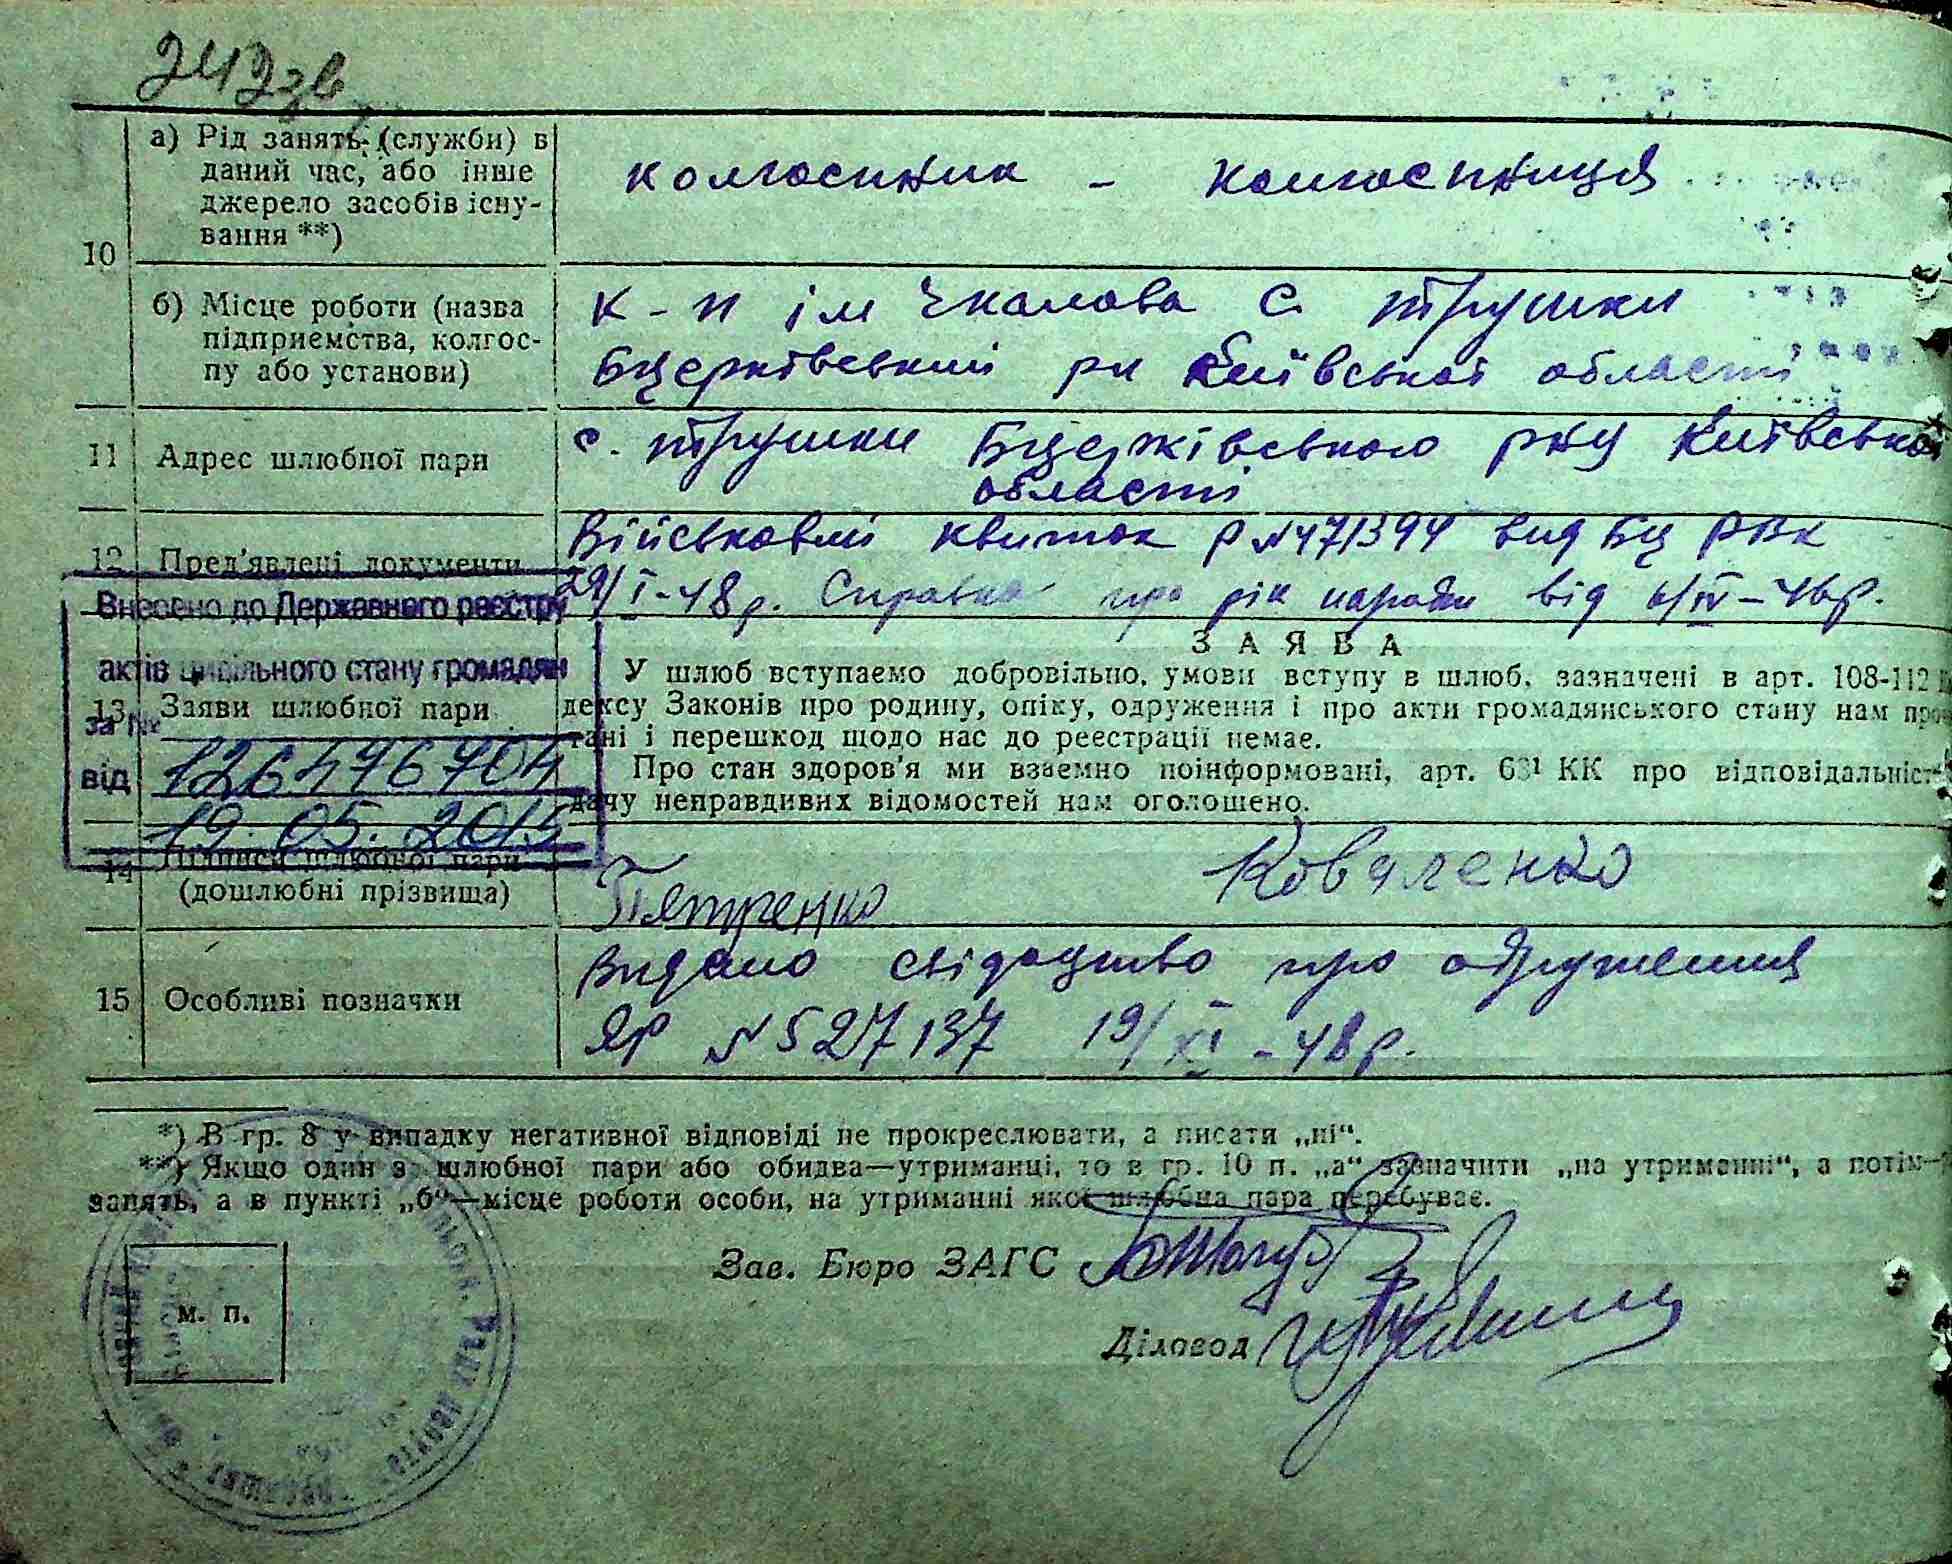 242 зв
10
а) Рід занять (служби) в
даний час, або інше
джерело засобів існу-
вання **)
колгоспник - колгоспниця
б) Місце роботи (назва
підприємства, колгос-
пу або установи)
к-п ім Чкалова с. Трушки
Бцерківський рн Київської області
11 Адрес шлюбної пари
с. Трушки Бцерківського рну Київської
області
12 Пред'явлені документи
Військовий квиток Р №471394 вид БЦ РВК
29/I-48 р. Справка про рік народж від 6/IV-46р.
Внесено до Державного реєстру
актів цивільного стану громадян
за №
126476704
від
19.05.2015
13 Заяви шлюбної пари
ЗАЯВА
У шлюб вступаємо добровільно, умови вступу в шлюб, зазначені в арт. 108-112
дексу Законів про родину, опіку, одруження і про акти громадянського стану нам про
тані і перешкод щодо нас до реєстрації немає.
Про стан здоров'я ми взаємно поінформовані, арт. 63¹ КК про відповідальніст
дачу неправдивих відомостей нам оголошено.
14 Підписи шлюбної пари
(дошлюбні прізвища)
Пятренко Коваленко
15 Особливі позначки
Видано свідоцтво про одруження
ЯР №527137 19/XI-48р.
*) В гр. 8 у випадку негативної відповіді не прокреслювати, а писати „ні“.
**) Якщо один з шлюбної пари або обидва—утриманці, то в гр. 10 п. „а“ зазначити „на утриманні“, а потім—
занять, а в пункті „б“—місце роботи особи, на утриманні якої шлюбна пара перебуває.
Зав. Бюро ЗАГС
Діловод
м. п.